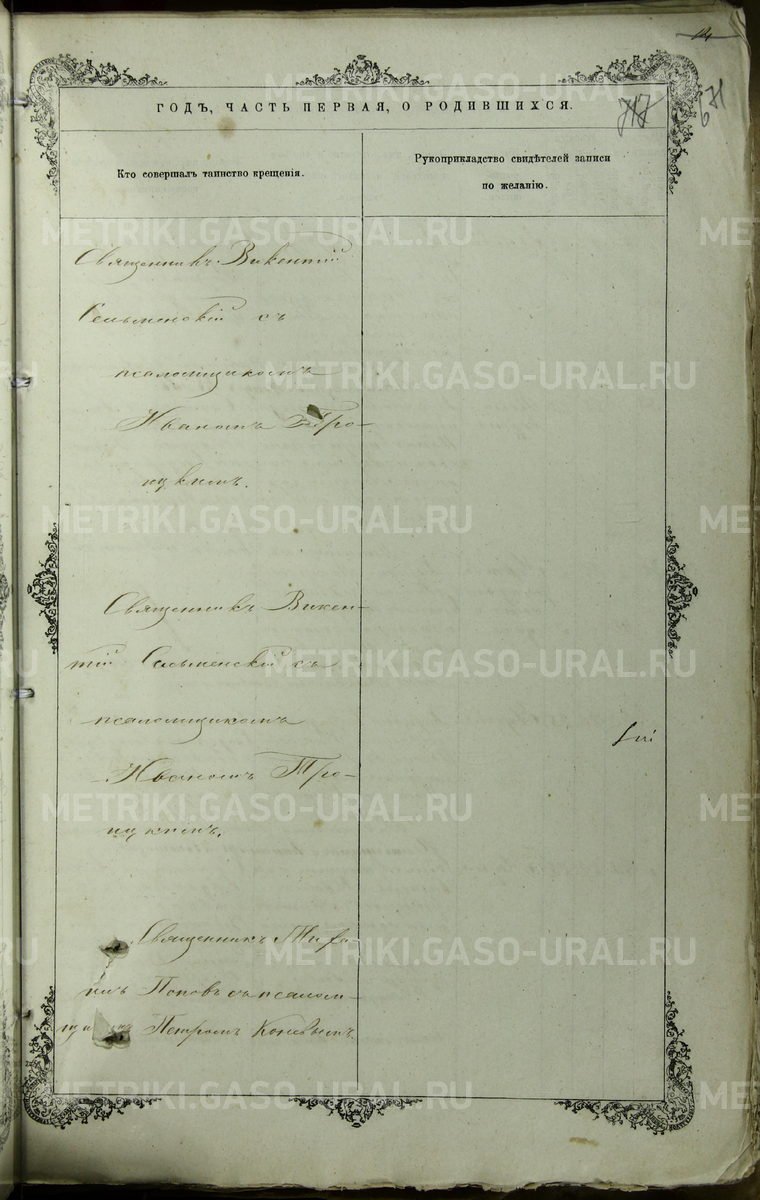 14
717
671
ГОДЪ, ЧАСТЬ ПЕРВАЯ, О РОДИВШИХСЯ.
Кто совершалъ таинство крещенія.
Рукоприкладство свидѣтелей записи
по желанію.
Священникъ Викентій
Сельменскій съ
псаломщикомъ
Иваномъ Тро-
ицкимъ.
Священникъ Викен-
тій Сельменскій съ
псаломщикомъ
Иваномъ Тро-
ицкимъ.
Священникъ
Поповъ съ псалом-
Петромъ
METRIKI.GASO-URAL.RU